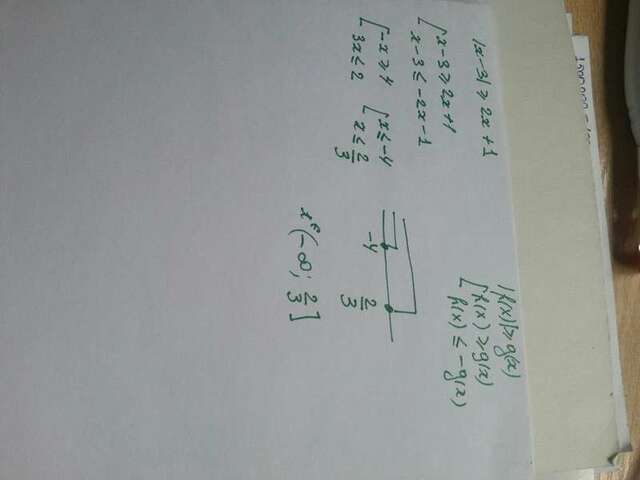 |x-3| ≥ 2x+1
[x-3 ≥ 2x+1
x-3 ≤ -2x-1
[-x ≥ 4 [x ≤ -4
3x ≤ 2 x ≤ 2/3
-4 2/3
x ∈ (-∞; 2/3]
|f(x)| ≥ g(x)
[f(x) ≥ g(x)
f(x) ≤ -g(x)